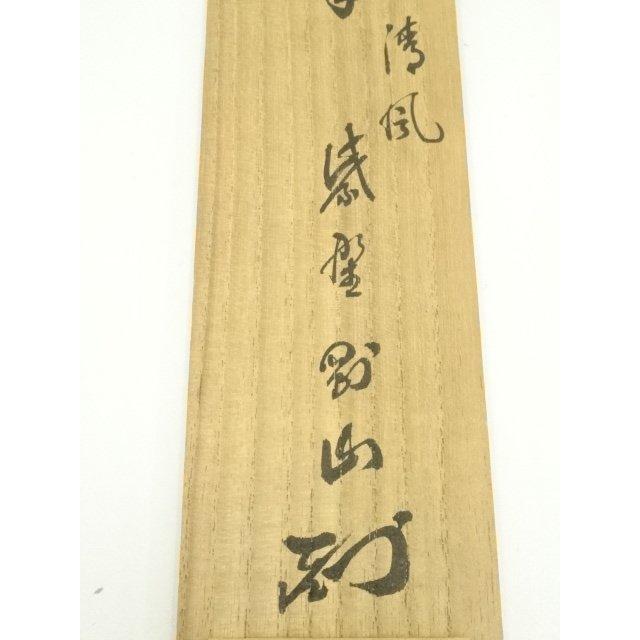 清風
紫野剛山